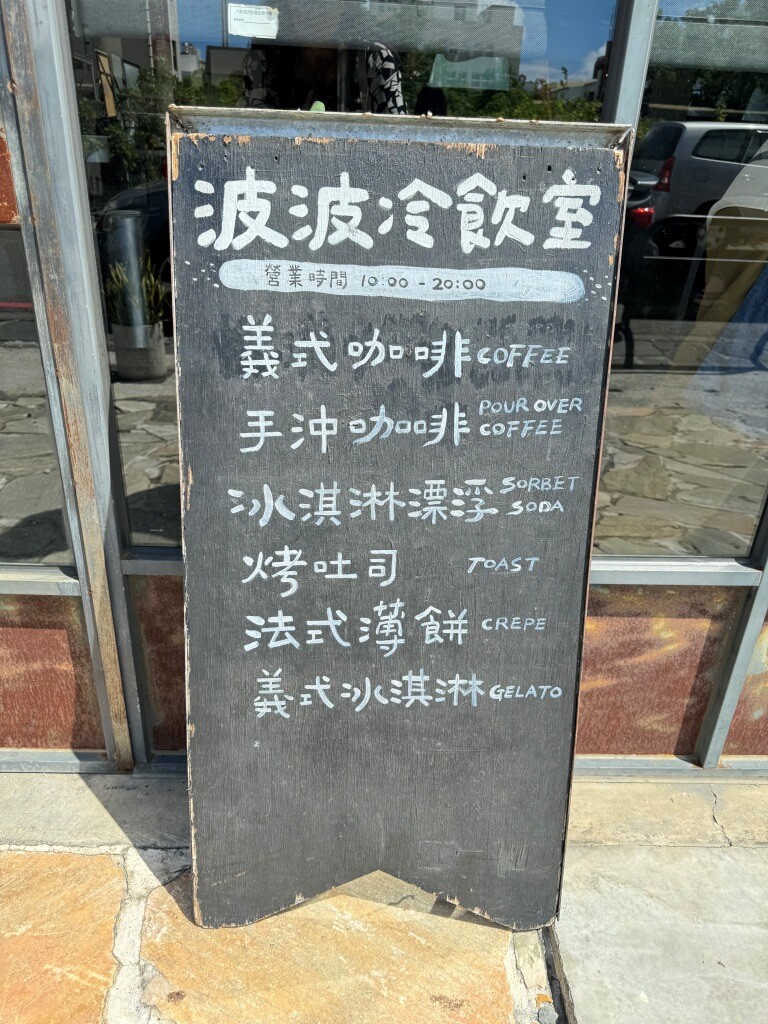 波波冷飲室
營業時間 10:00 - 20:00
義式咖啡 COFFEE
手沖咖啡 POUR OVER COFFEE
冰淇淋漂浮 SORBET SODA
烤吐司 TOAST
法式薄餅 CREPE
義式冰淇淋 GELATO